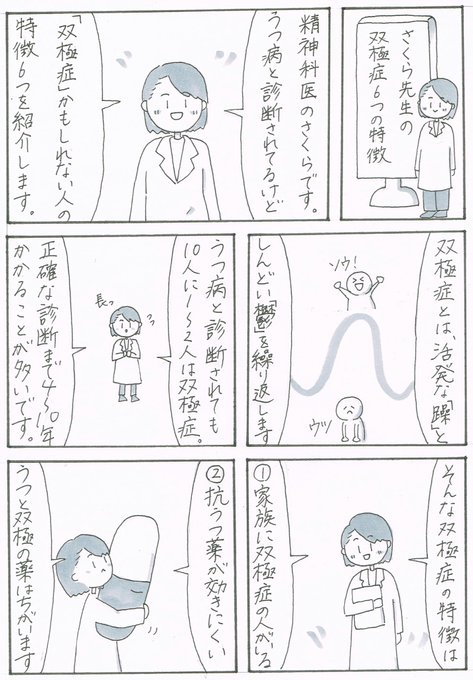 さくら先生の
双極症6つの特徴
精神科医のさくらです。
うつ病と診断されてるけど
「双極症」かもしれない人の
特徴6つを紹介します。
双極症とは、活発な「躁」と
ソウ!
ウツ
しんどい「鬱」を繰り返します
うつ病と診断されても
10人に1〜2人は双極症。
長っ
正確な診断まで4〜10年
かかることが多いです。
そんな双極症の特徴は
①家族に双極症の人がいる
②抗うつ薬が効きにくい
うつと双極の薬はちがいます